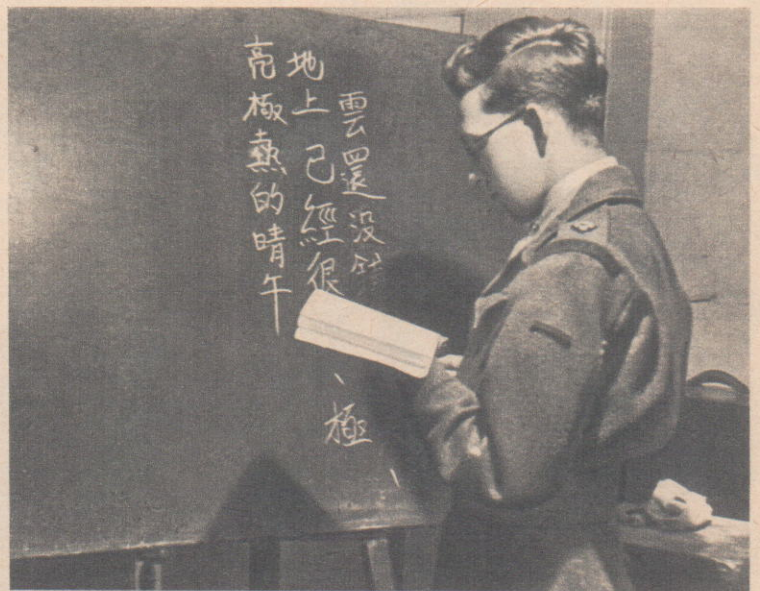 雲還没、
地上已經很、極
亮極熱的晴午